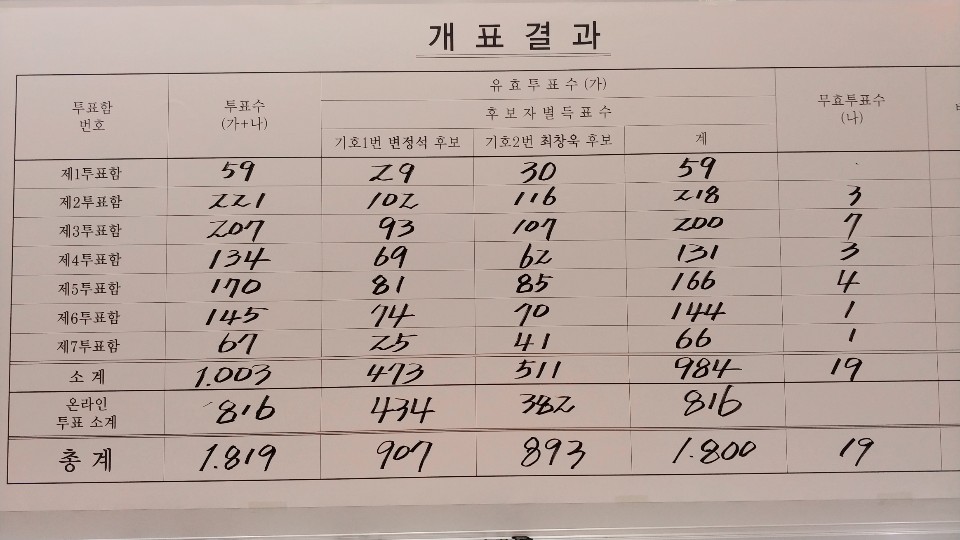 개표결과
투표함 번호 투표수 (가+나) 유효투표수 (가) 무효투표수 (나)
후보자별득표수
기호1번 변정석 후보 기호2번 최창욱 후보 계
제1투표함 59 29 30 59
제2투표함 221 102 116 218 3
제3투표함 207 93 107 200 7
제4투표함 134 69 62 131 3
제5투표함 170 81 85 166 4
제6투표함 145 74 70 144 1
제7투표함 67 25 41 66 1
소계 1.003 473 511 984 19
온라인 투표 소계 816 434 382 816
총계 1.819 907 893 1.800 19